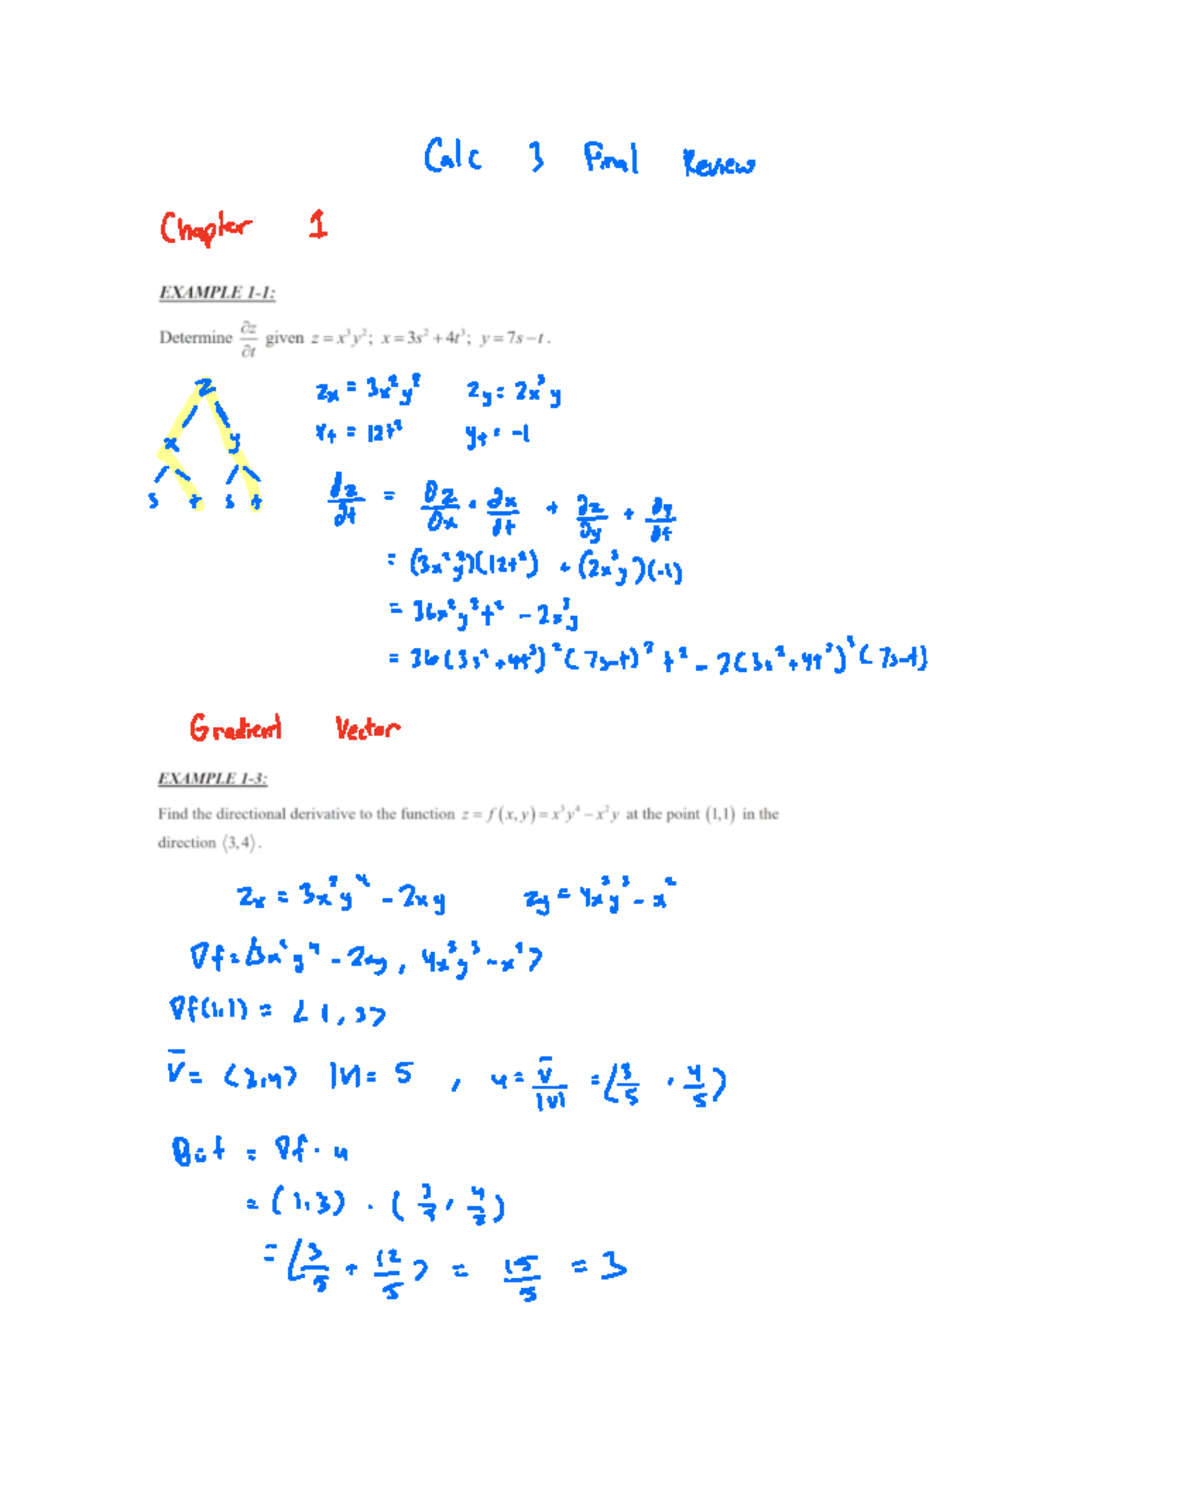 Calc 3 Final Review
Chapter 1
EXAMPLE 1-1:
Determine ∂z/∂t given z = x³y²; x = 3s² + 4t³; y = 7s − t.
z
x y
s t s t
Zx = 3x²y² Zy = 2x³y
xt = 12t² yt = -1
∂z/∂t = ∂z/∂x · ∂x/∂t + ∂z/∂y + ∂y/∂t
= (3x²y²)(12t²) + (2x³y)(-1)
= 36x²y²t² - 2x³y
= 36(3s²+4t³)²(7s-t)²t² - 2(3s²+4t³)³(7s-t)
Gradient Vector
EXAMPLE 1-3:
Find the directional derivative to the function z = f(x,y) = x³y⁴ − x²y at the point (1,1) in the
direction ⟨3,4⟩.
Zx = 3x²y⁴ - 2xy Zy = 4x³y³ - x²
∇f = ⟨3x²y⁴ - 2xy, 4x³y³ - x²⟩
∇f(1,1) = ⟨1,3⟩
v̄ = ⟨3,4⟩ |v| = 5, u = v̄/|v| = ⟨3/5, 4/5⟩
= ∇f · u
= (1,3) · (3/5, 4/5)
= ⟨3/5 + 12/5⟩ = 15/5 = 3